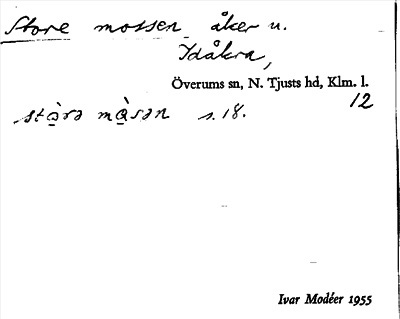 Store mossen åker u.
Idåkra,
Överums sn, N. Tjusts hd, Klm. l.
12
s. 18.
Ivar Modéer 1955